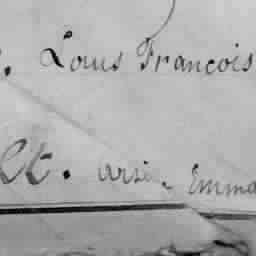 . Louis François
Ct. Emma